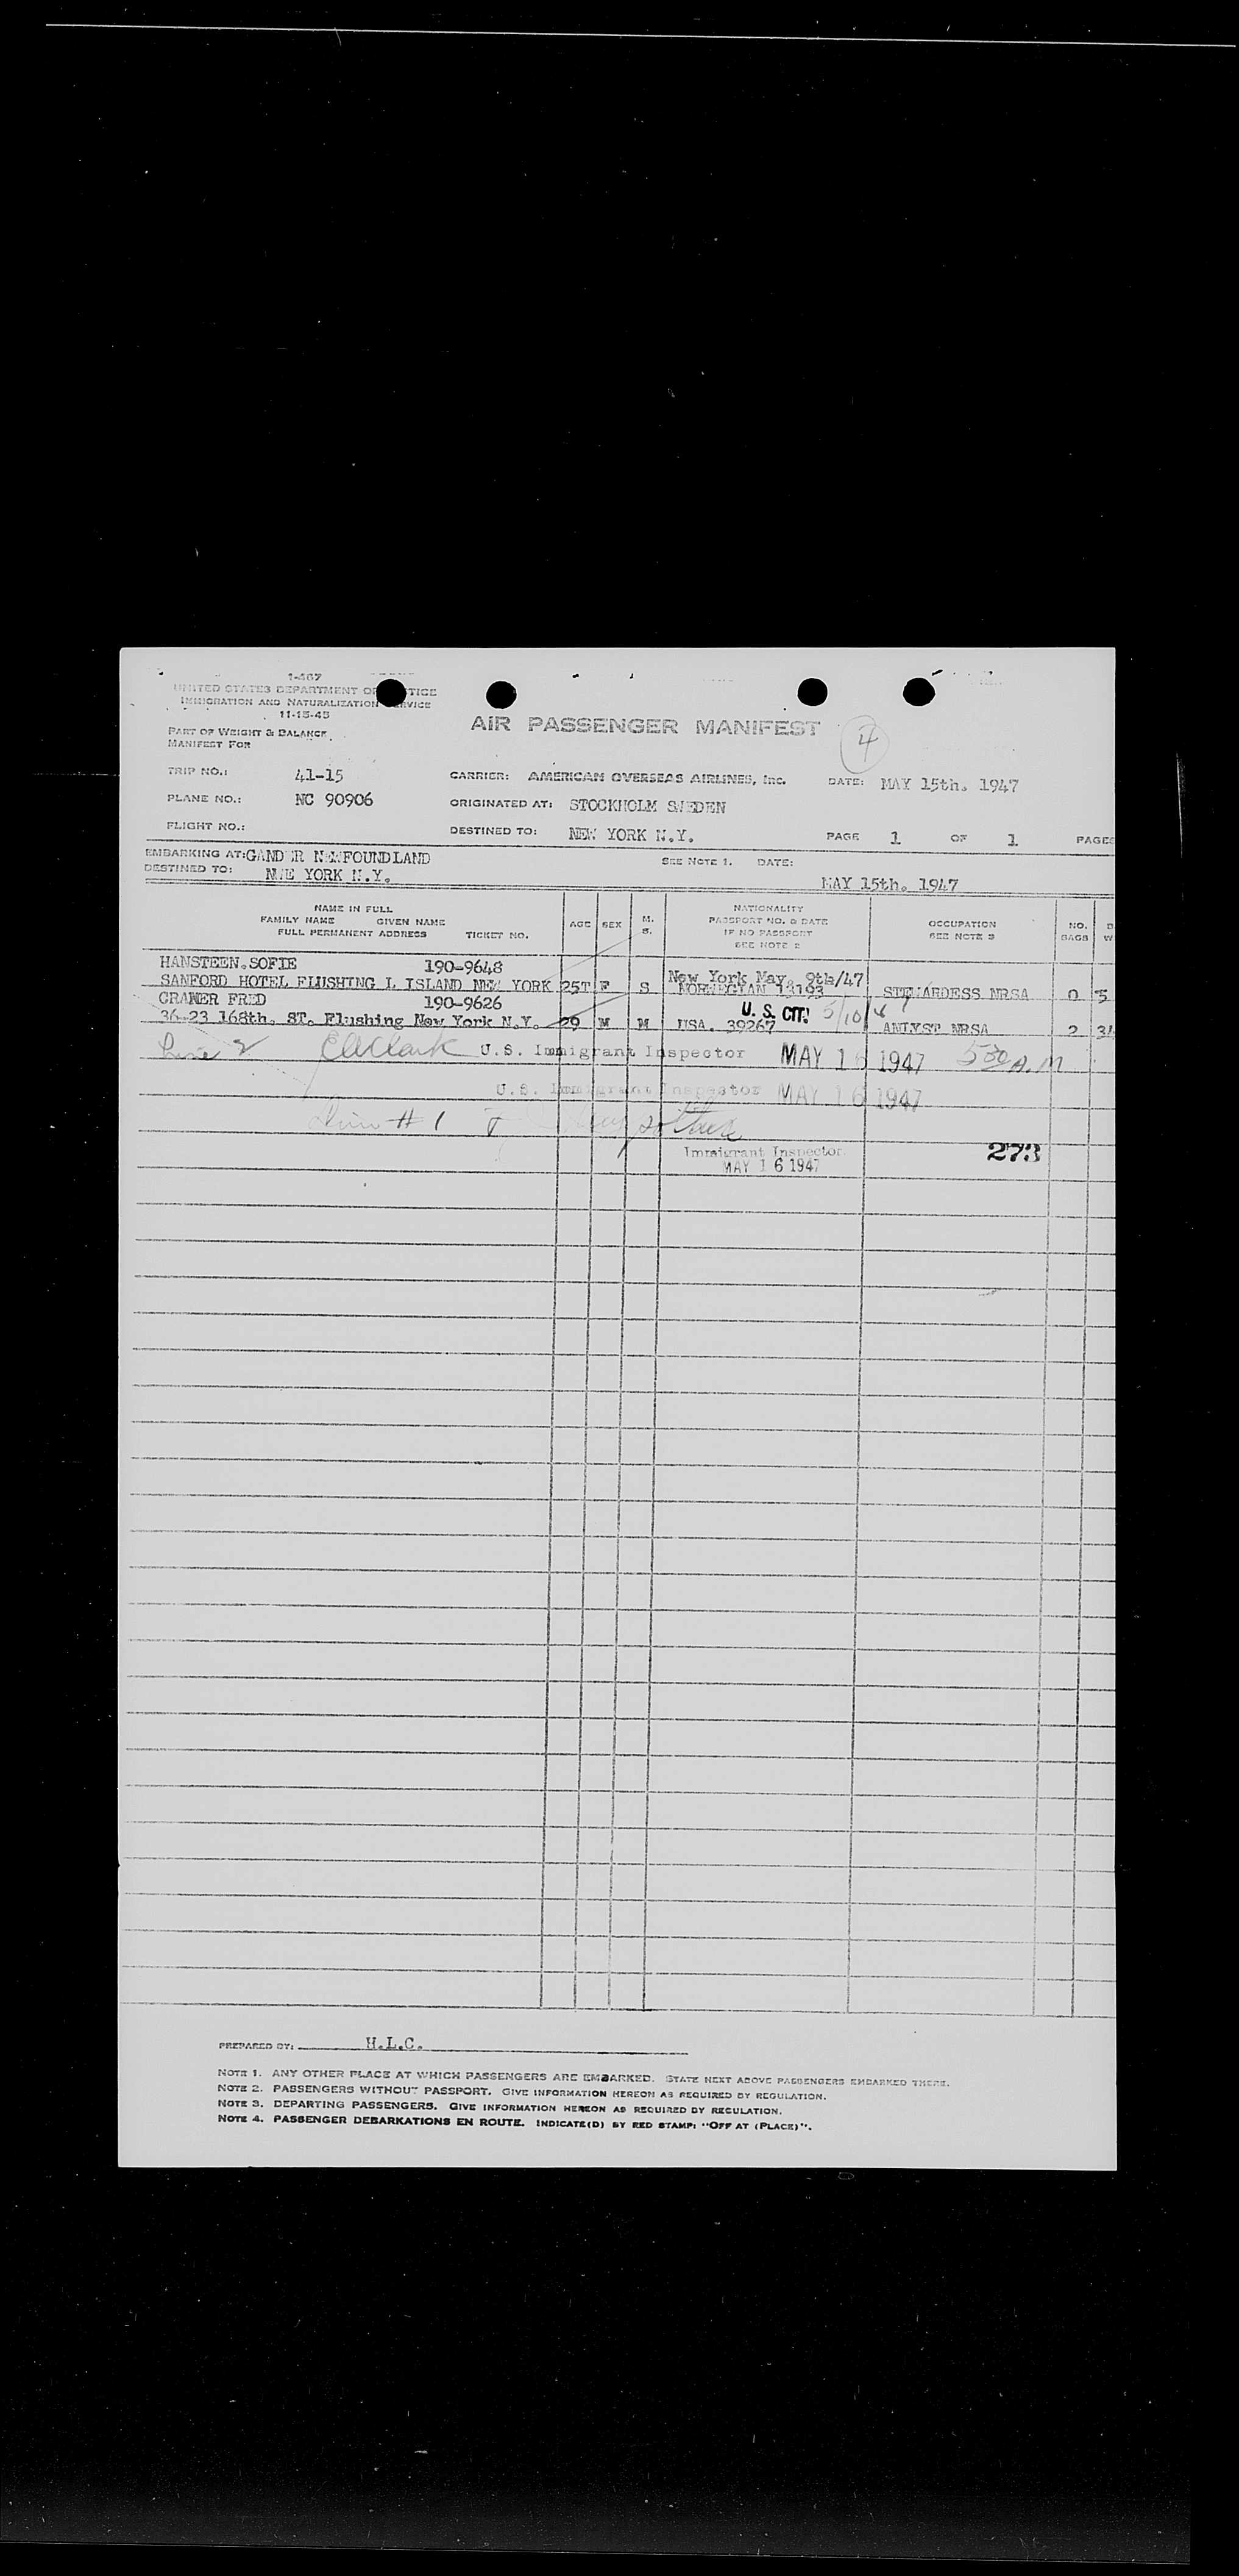 1-467
UNITED STATES DEPARTMENT OF JUSTICE
IMMIGRATION AND NATURALIZATION SERVICE
11-15-45
PART OF WEIGHT & BALANCE
MANIFEST FOR
AIR PASSENGER MANIFEST
4
TRIP NO.: 41-15 CARRIER: AMERICAN OVERSEAS AIRLINES, INC. DATE: MAY 15th. 1947
PLANE NO.: NC 90906 ORIGINATED AT: STOCKHOLM SWEDEN
FLIGHT NO.: DESTINED TO: NEW YORK N.Y. PAGE 1 OF 1 PAGES
EMBARKING AT: GANDER NEWFOUNDLAND SEE NOTE 1. DATE:
DESTINED TO: NWE YORK N.Y. MAY 15th. 1947
NAME IN FULL
FAMILY NAME GIVEN NAME
FULL PERMANENT ADDRESS TICKET NO.
AGE SEX M. S.
NATIONALITY
PASSPORT NO. & DATE
IF NO PASSPORT
SEE NOTE 2
OCCUPATION
SEE NOTE 3
NO.
BAGS
HANSTEEN.SOFIE 190-9648 New York May. 9th/47
SANFORD HOTEL FLUSHING L ISLAND NEW YORK 25T F S NORWEGIAN 13193 STEWARDESS NRSA 0 5
CRAMER FRED 190-9626 U. S. CIT. 5/10/47
36-23 168th. ST. Flushing New York N.Y. 29 M M USA. 39267 ANLYST NRSA 2 34
Line 2 EAClark U.S. Immigrant Inspector MAY 16 1947 530 A.M
U.S. Immigrant Inspector MAY 16 1947
Line # 1
Immigrant Inspector 273
MAY 16 1947
PREPARED BY: H.L.C.
NOTE 1. ANY OTHER PLACE AT WHICH PASSENGERS ARE EMBARKED. STATE NEXT ABOVE PASSENGERS EMBARKED THERE.
NOTE 2. PASSENGERS WITHOUT PASSPORT. GIVE INFORMATION HEREON AS REQUIRED BY REGULATION.
NOTE 3. DEPARTING PASSENGERS. GIVE INFORMATION HEREON AS REQUIRED BY REGULATION.
NOTE 4. PASSENGER DEBARKATIONS EN ROUTE. INDICATE(D) BY RED STAMP: "OFF AT (PLACE)".